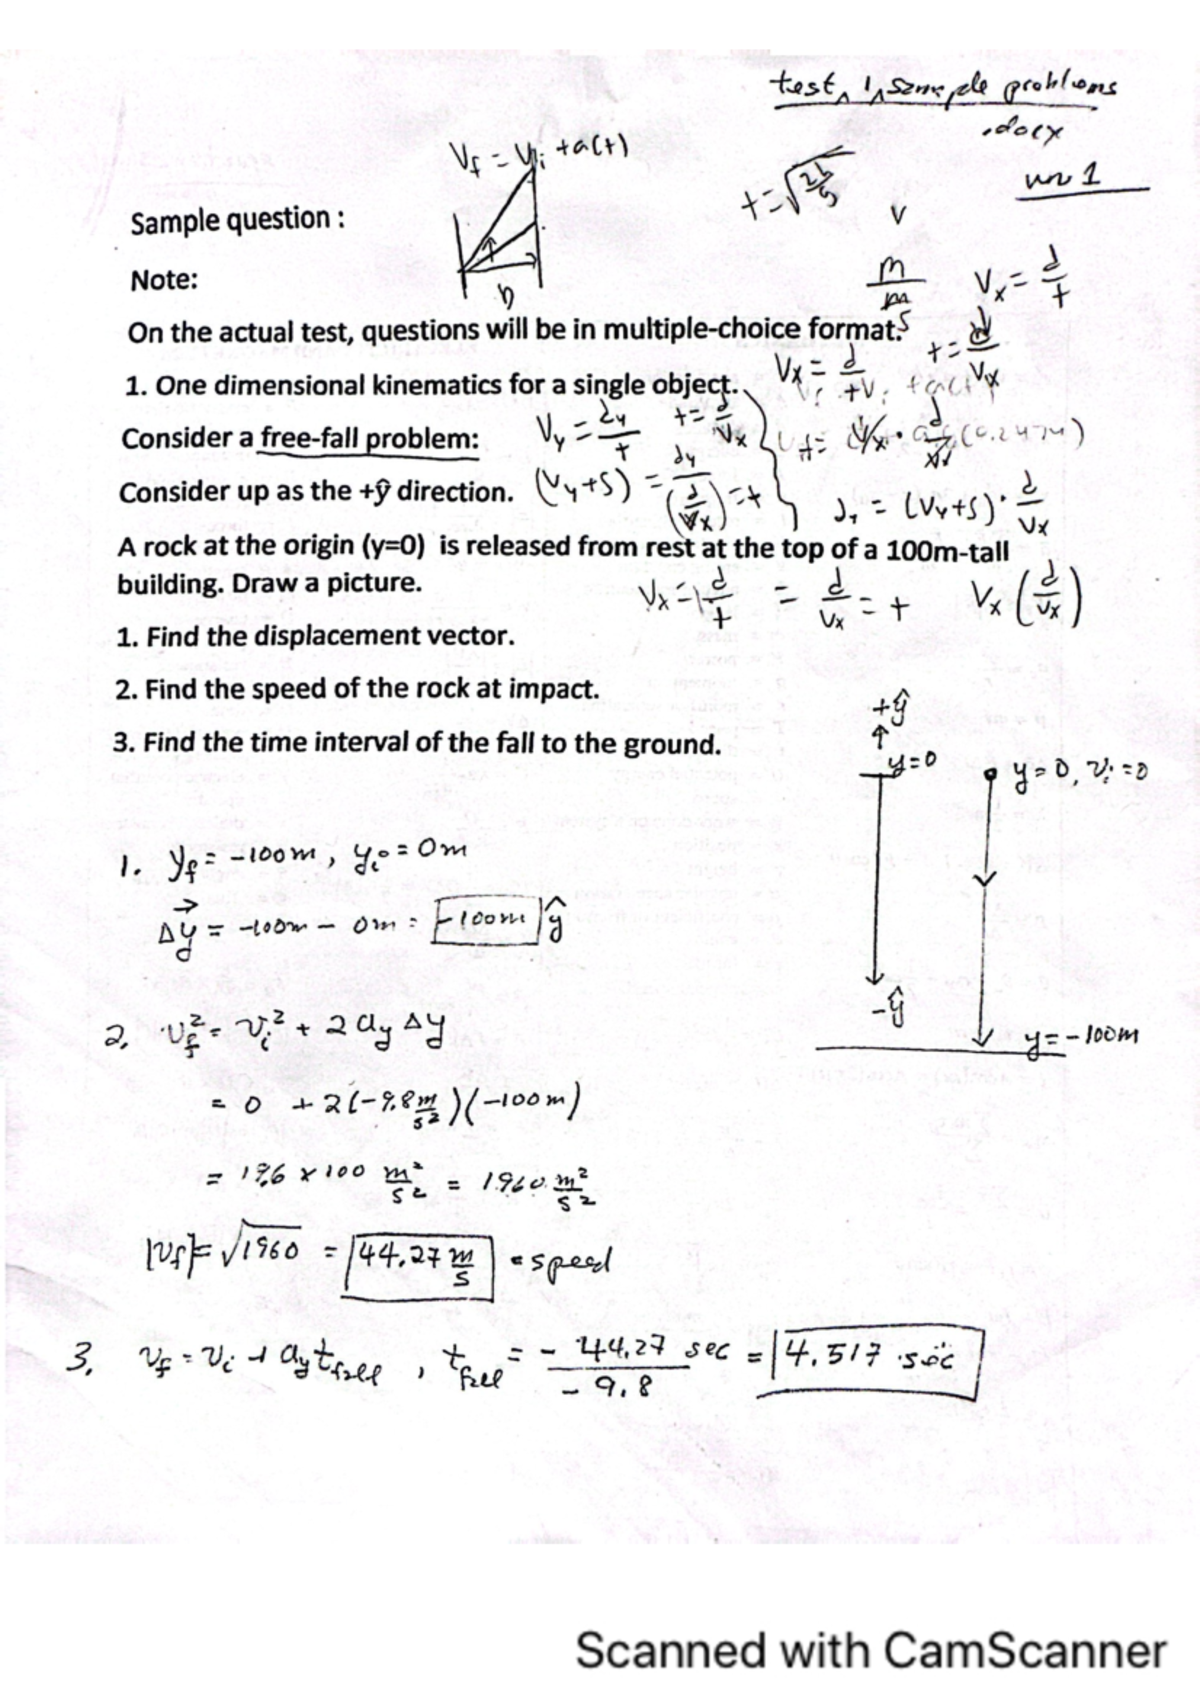 test 1, sample problems
.docx
ver 1
V_f = V_i + a(t)
t = √(2h/g)
V
Sample question :
h
m/m
s
V_x = d/t
Note:
On the actual test, questions will be in multiple-choice format.
t = d/V_x
1. One dimensional kinematics for a single object.
V_x = d/t
V_y = dy/t
t = d/V_x
(0.2474)
Consider a free-fall problem:
Consider up as the +ŷ direction.
(V_y+S) = dy/(d/V_x) = t
d_1 = (V_y+S) · d/V_x
A rock at the origin (y=0) is released from rest at the top of a 100m-tall
building. Draw a picture.
V_x = d/t = d/V_x = t
V_x (d/V_x)
1. Find the displacement vector.
2. Find the speed of the rock at impact.
3. Find the time interval of the fall to the ground.
+ŷ
↑
y=0
y=0, v_i=0
1. y_f = -100m, y_i = 0m
Δy⃗ = -100m - 0m = -100m ŷ
-ŷ
y=-100m
2. v_f² = v_i² + 2 a_y Δy
= 0 + 2(-9.8 m/s²)(-100m)
= 19.6 x 100 m²/s² = 1960. m²/s²
|v_f| = √1960 = 44.27 m/s = speed
3. v_f = v_i + a_y t_fall , t_fall = - 44.27 / - 9.8 sec = 4.517 sec
Scanned with CamScanner